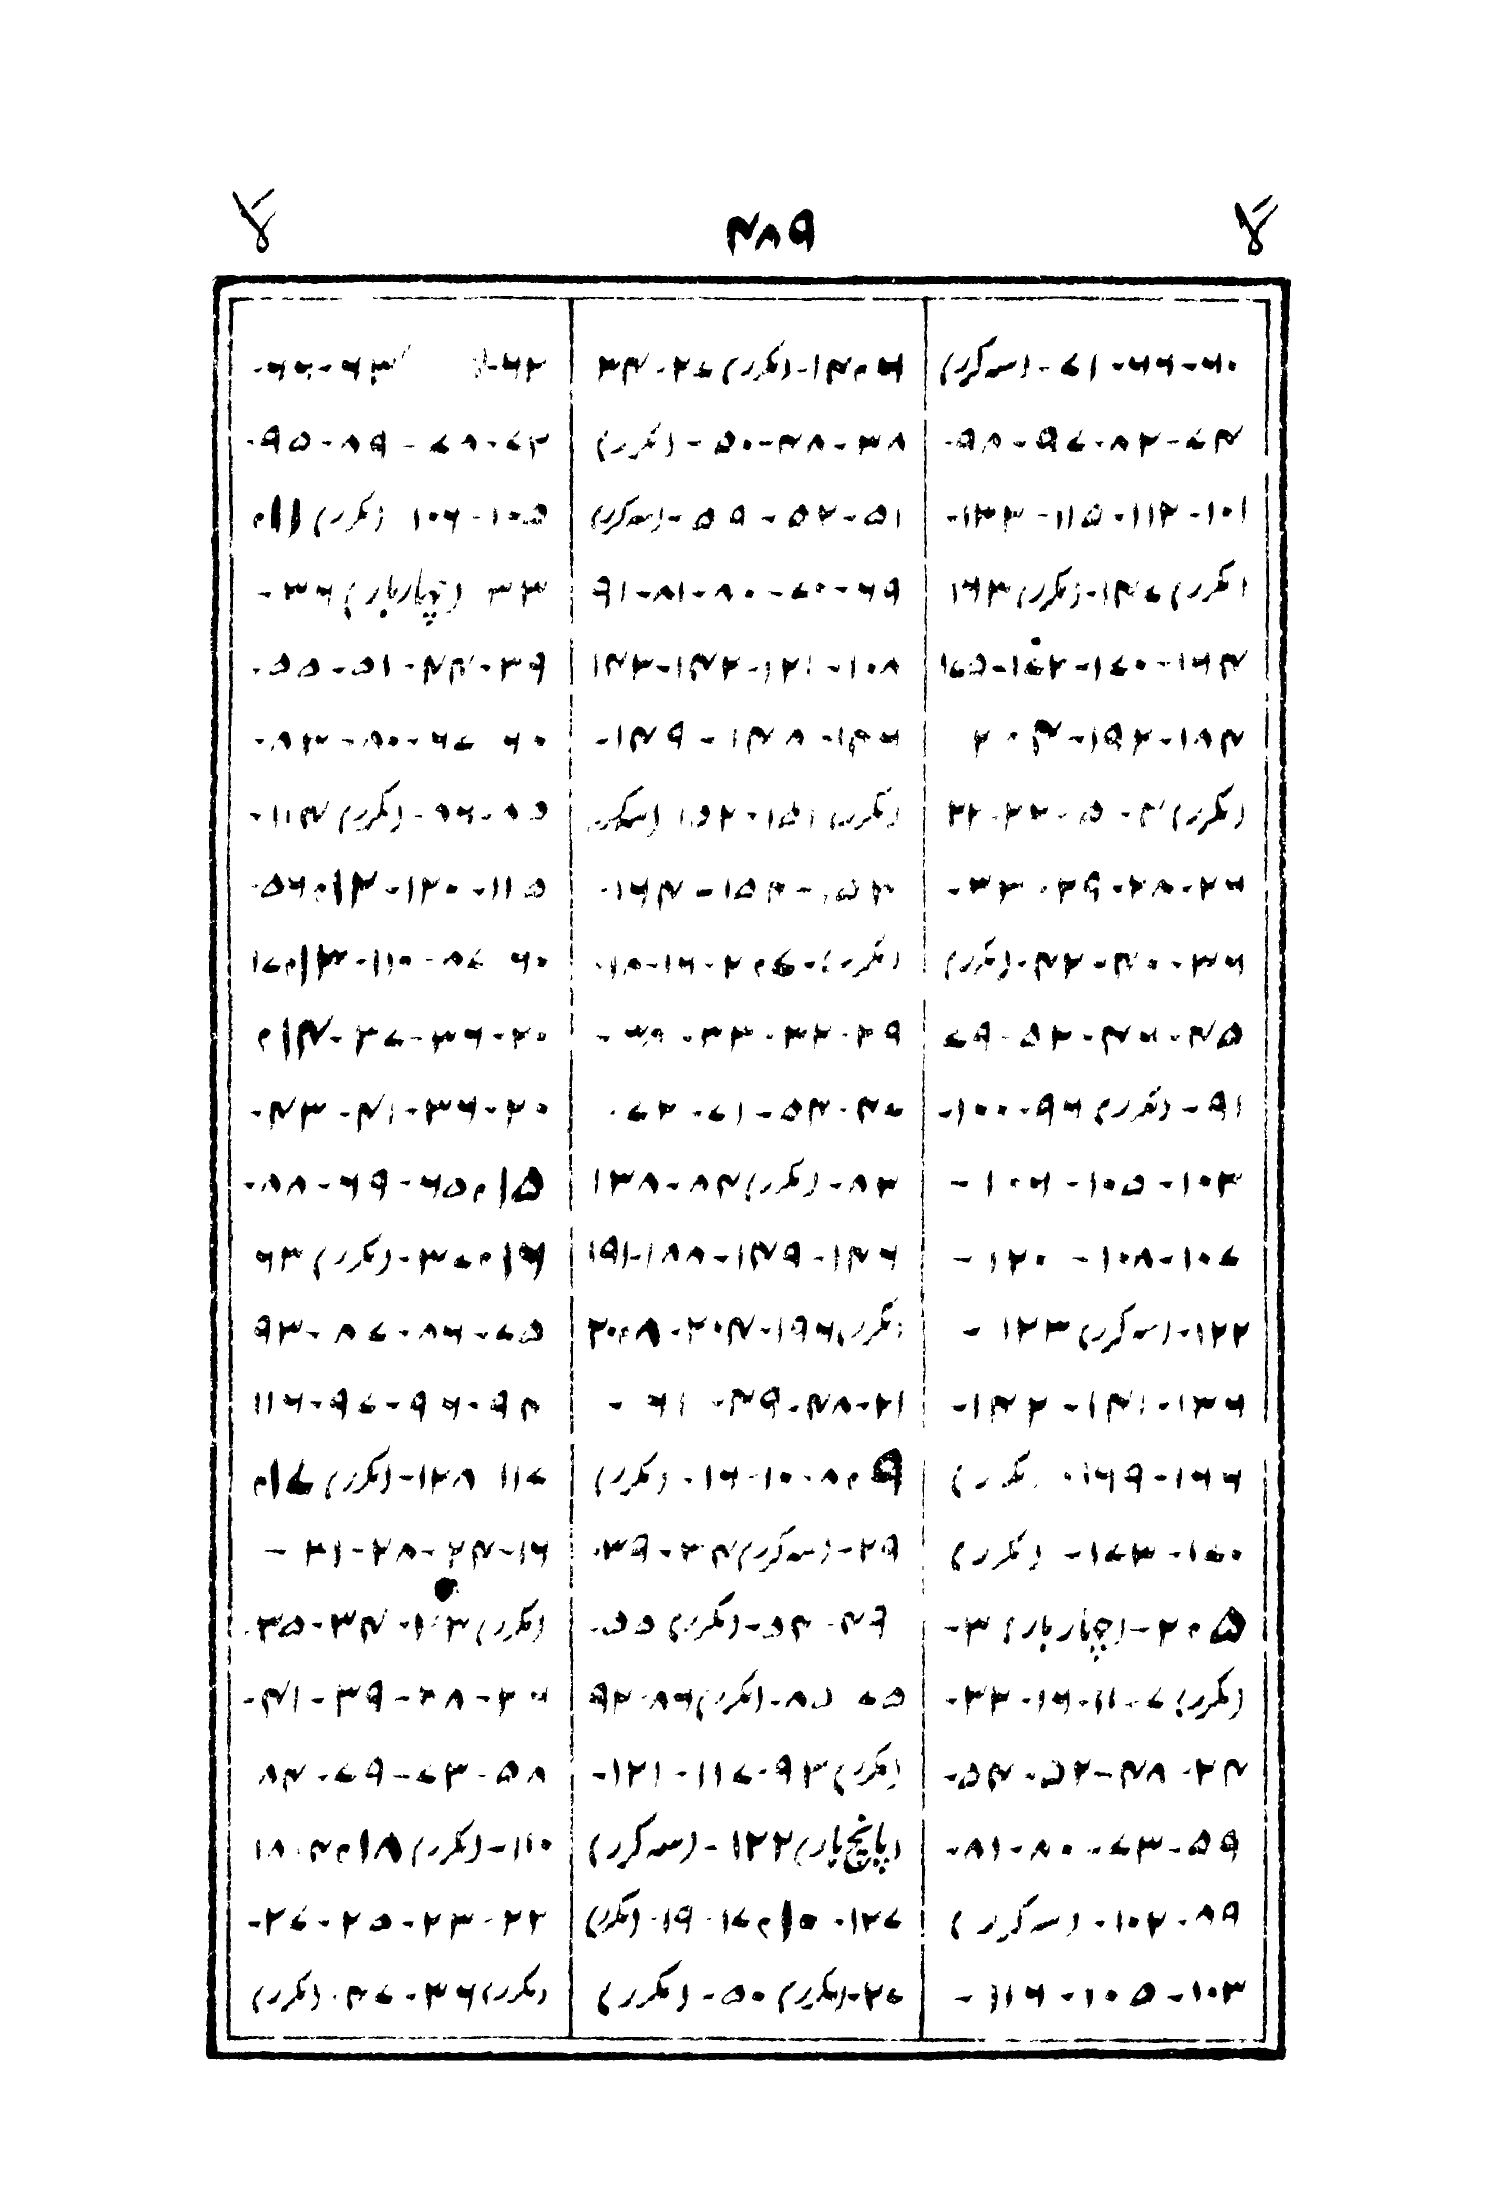 ۴۸۹
۶۰-۶۶-۷۱-(سہ کرر)
۷۴-۸۲-۹۷-۹۸-
۱۰۱-۱۱۲-۱۱۵-۱۲۳-
(مکرر)۱۴۷-(مکرر)۱۶۳
۱۶۴-۱۷۰-۱۷۲-۱۷۵
۱۸۴-۱۹۲-۲۰۴
(مکرر)۴-۵-۲۲-۲۲
۲۶-۲۸-۲۹-۳۳-
۳۶-۴۰-۴۲-(مکرر)
۴۵-۴۶-۵۲-۷۹
۹۱-(مکرر)۹۶-۱۰۰-
۱۰۳-۱۰۵-۱۰۶-
۱۰۷-۱۰۸-۱۲۰-
۱۲۲-(سہ کرر)۱۲۳-
۱۳۶-۱۴۱-۱۴۲-
۱۶۶-۱۶۹-(مکرر)
۱۷۰-۱۷۳-(مکرر)
۵م۲-(چہار بار)۳-
(مکرر)۷-۱۱-۱۶-۳۳-
۴۲-۴۸-۵۲-۵۴-
۵۹-۷۳-۸۰-۸۱-
۸۹-۱۰۲-(سہ کرر)
۱۰۳-۱۰۵-۱۱۶-
۶م۱۴-(مکرر)۲۷-۳۴
۳۸-۴۸-۵۰-(مکرر)
۵۱-۵۲-۵۹-(سہ کرر)
۶۹-۷۰-۸۰-۸۱-۹۱
۱۰۸-۱۲۱-۱۴۲-۱۴۳
۱۴۶-۱۴۸-۱۴۹-
(مکرر)۱۵۱-۱۵۲(سہ کرر)
۱۵۳-۱۵۴-۱۶۴-
(مکرر)-۷م۲-۱۶-۱۸-
۲۹-۳۲-۳۳-
۴۷-۵۳-۷۱-۷۲-
۸۳-(مکرر)۸۴-۱۳۸
۱۴۶-۱۴۹-۱۸۸-۱۹۱
(مکرر)۱۹۶-۲۰۴-۸م۲۰
۲۱-۴۸-۴۹-۶۱-
۹م۸-۱۰-۱۶-(مکرر)
۲۹-(سہ کرر)۳۴-۳۹-
۴۹-۵۴-(مکرر)۵۵-
۷۵-۸۵-(مکرر)۸۶-۹۲
(مکرر)۹۳-۱۱۷-۱۲۱-
(پانچ بار)۱۲۲-(سہ کرر)
۱۲۷-۱۰م۱۷-۱۹-(مکرر)
۲۷-(مکرر)۵۰-(مکرر)
۶۲-۶۳-۶۶-
۶۷-۷۸-۸۹-۹۵-
۱۰۵-۱۰۶(مکرر)۱۱م
۳۳(چہار بار)۳۶-
۳۹-۴۴-۵۱-۵۵-
۶۰-۶۷-۸۰-۸۳-
۸۹-۹۶-(مکرر)۱۱۴-
۱۱۵-۱۲۰-۱۲م۵۶-
۶۰-۸۷-۱۱۰-۱۳م۱۷
۲۰-۳۶-۳۷-۱۴م
۲۰-۳۶-۴۱-۴۳-
۱۵م۶۵-۶۹-۸۸-
۱۶م۳۷-(مکرر)۶۳
۷۵-۸۶-۸۷-۹۳
۹۴-۹۶-۹۷-۱۱۶
۱۱۷-۱۲۸-(مکرر)۱۷م
۱۶-۲۴-۲۸-۳۱-
(مکرر)۳۲-۳۴-۳۵-
۳۶-۳۸-۳۹-۴۱-
۵۸-۷۳-۷۹-۸۴
۱۱۰-(مکرر)۱۸م۴-۱۸
۲۲-۲۳-۲۵-۲۷-
(مکرر)۳۶-۴۷-(مکرر)